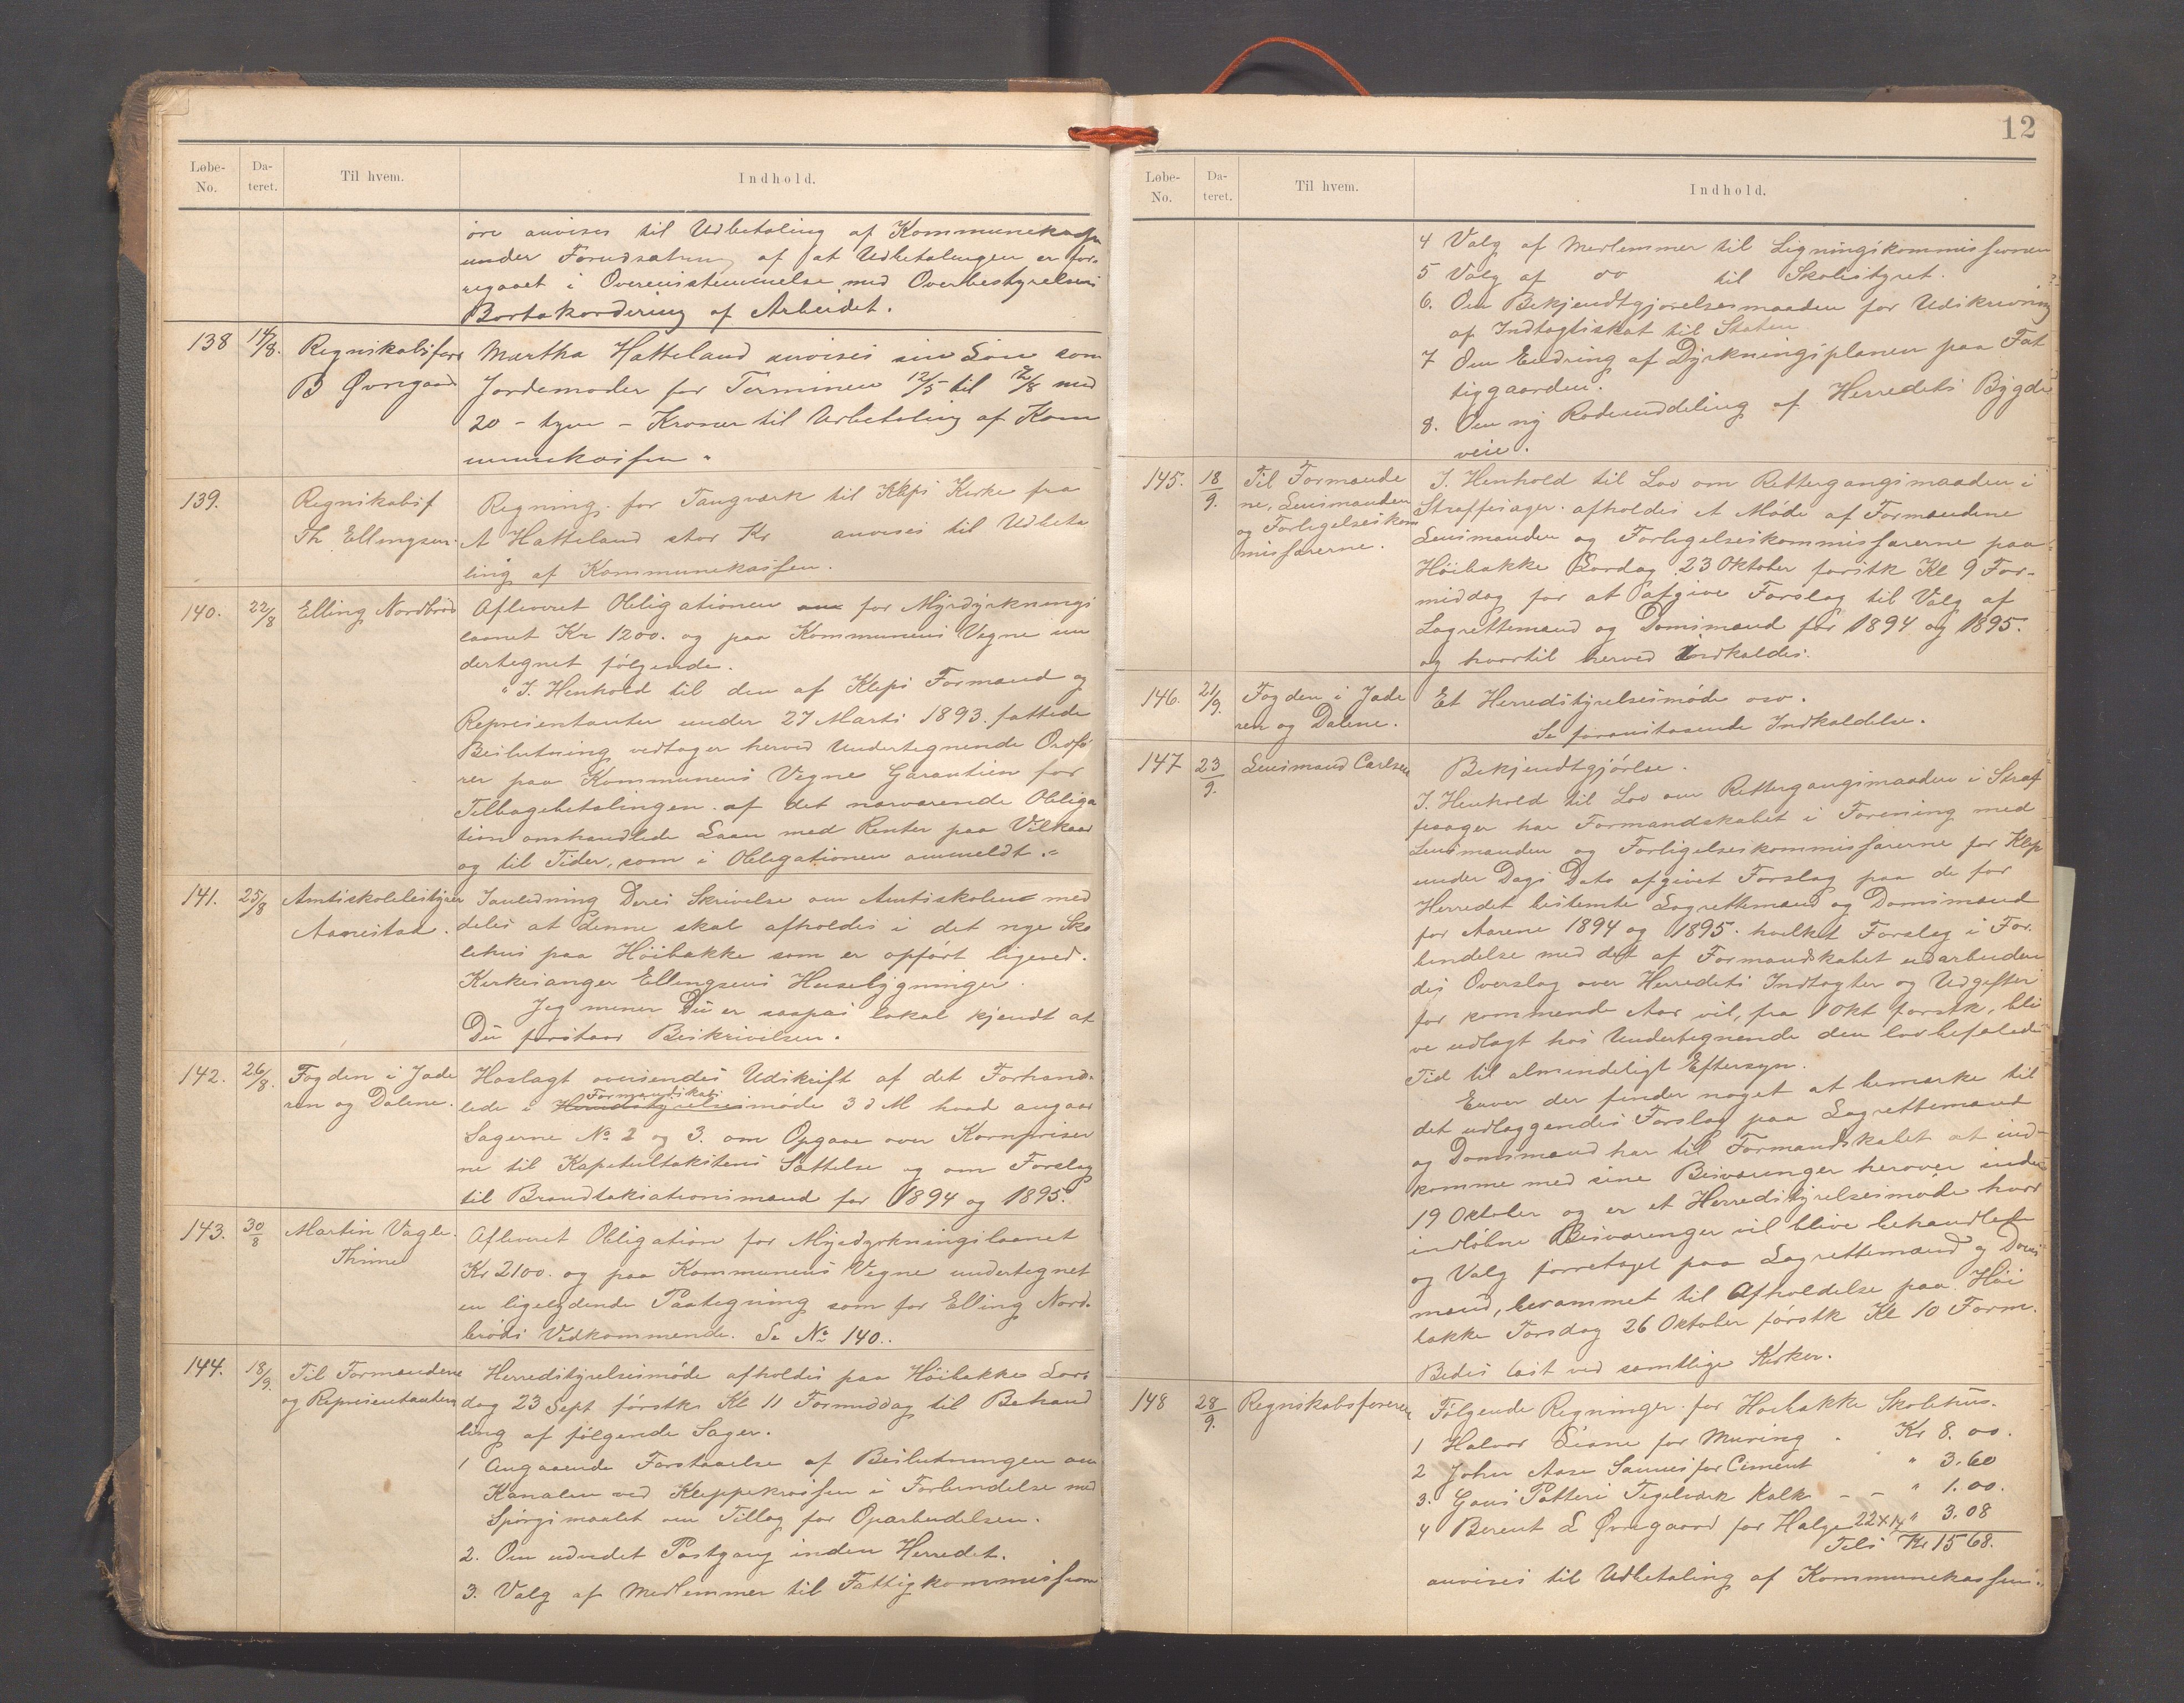 Løbe-No. Da-teret. Til hvem. Indhold.
øre anvises til Udbetaling af Kommunekassen
under Forudsætning af at Udbetalingen er for-
egaaet i Overensstemmelse med Overbestyrelsens
Bortakordering af Arbeidet.
138 14/8. Regnskabsfører B Øvregaard
Martha Hatteland anvises sin Løn som
Jordemoder for Terminen 12/5 til 12/8 med
20 - tyve - Kroner til Udbetaling af Kom
munekassen.
139. Regnskabsf Th. Ellingsen.
Regning for Tangværk til Kleps Kirke fra
A Hatteland stor Kr anvises til Udbeta
ling af Kommunekassen.
140. 22/8 Elling Nordbrød
Afleveret Obligationen for Myrdyrknings
laanet Kr 1200. og paa Kommunens Vegne un
dertegnet følgende.
"I. Henhold til den af Kleps Formænd og
Representanter under 27 Marts 1893. fattede
Beslutning vedtager herved Undertegnende Ordfø
rer paa Kommunens Vegne Garantien for
Tilbagebetalingen af det nærværende Obliga
tion omhandlede Laan med Renter paa Vilkaar
og til Tider, som i Obligationen anmeldt."
141. 25/8 Amtsskolebestyrer Aarrestad.
I anledning Deres Skrivelse om Amtsskolen med
deles at denne skal afholdes i det nye Sko
lehus paa Höibakke som er opført ligeved
Kirkesanger Ellingsens Husebygninger.
Jeg mener Du er saapas lokal kjendt at
Du forstaar Beskrivelsen.
142. 26/8. Fogden i Jæde ren og Dalene.
Hoslagt oversendes Udskrift af det Forhand-
lede i Herredsstyrelses Formandskabsmøde 3 d M hvad angaar
Sagerne No 2 og 3. om Opgave over Kornpriser
ne til Kapiteltakstens Sættelse og om Forslag
til Brandtaksationsmænd for 1894 og 1895.
143. 30/8 Martin Vagle. Thime
Afleveret Obligation for Myrdyrkningslaanet
Kr 2100. og paa Kommunens Vegne undertegnet
en ligelydende Paategning som for Elling Nord-
brøds Vedkommende. Se No 140.
144. 18/9. Til Formændene og Representanterne
Herredsstyrelsesmøde afholdes paa Höibakke Lør-
dag 23 Sept førstk Kl 11 Formiddag til Behand
ling af følgende Sager.
1 Angaaende Forstaaelse af Beslutningen om
Kanalen ved Kleppekrossen i Forbindelse med
Spørgsmaalet om Tillæg for Oparbeidelsen.
2. Om udvidet Postgang inden Herredet.
3. Valg af Medlemmer til Fattigkommissionen
12
Løbe-No. Da-teret. Til hvem. Indhold.
4 Valg af Medlemmer til Ligningskommissionen
5 Valg af do til Skolestyret.
6. Om Bekjendtgjørelsesmaaden for Udskrivning
af Indtægtsskat til Staten
7 Om Endring af Dyrkningsplanen paa Fat
tiggaarden.
8. Om ny Rodeinddeling af Herredets Bygde
veie.
145. 18/9. Til Formænde ne, Lensmanden og Forligelseskom missærerne.
I. Henhold til Lov om Rettergangsmaaden i
Straffesager. afholdes et Møde af Formændene
Lensmanden og Forligelseskommissærerne paa
Höibakke Lørdag 23 Oktober førstk Kl 9 For-
middag for at afgive Forslag til Valg af
Lagrettemænd og Domsmænd for 1894 og 1895.
og hvortil herved indkaldes.
146. 21/9. Fogden i Jæde ren og Dalene.
Et Herredsstyrelsesmøde osv.
Se foranstaaende Indkaldelse.
147 23/9. Lensmand Carlsen
Bekjendtgjørelse.
I. Henhold til Lov om Rettergangsmaaden i Straf
fesager har Formandskabet i Forening med
Lensmanden og Forligelseskommissærerne for Klep
under Dags Dato afgivet Forslag paa de for
Herredet bestemte Lagrettemænd og Domsmænd
for Aarene 1894 og 1895. hvilket Forslag i For-
bindelse med det af Formandskabet udarbeide
des Overslag over Herredets Indtægter og Udgifter
for kommende Aar vil, fra 1 Okt førstk, bli
ve udlagt hos Undertegnende den lovbefalede
Tid til almindeligt Eftersyn.
Enver der finder noget at bemærke til
det udlæggendes Forslag paa Lagrettemænd
og Domsmænd har til Formandskabet at ind-
komme med sine Besværinger herover inden
19 Oktober og er et Herredsstyrelsesmøde hvor
indløbne Besværinger vil blive behandlede
og Valg foretaget paa Lagrettemænd og Doms
mænd, berammet til Afholdelse paa Höi
bakke Torsdag 26 Oktober førstk Kl 10 Form.
Bedes læst ved samtlige Kirker.
148 28/9. Regnskabsføreren
Følgende Regninger for Höibakke Skolehus.
1 Halvor Liane for Muring " Kr 8.00.
2 John Aase Sannes for Cement " 3.60
3. Gans Potteri Tegelværk Kalk - - " 1.00.
4 Berent L Øvregaard for Halge 22x14 " 3.08
Tils Kr 15 68.
anvises til Udbetaling af Kommunekassen.